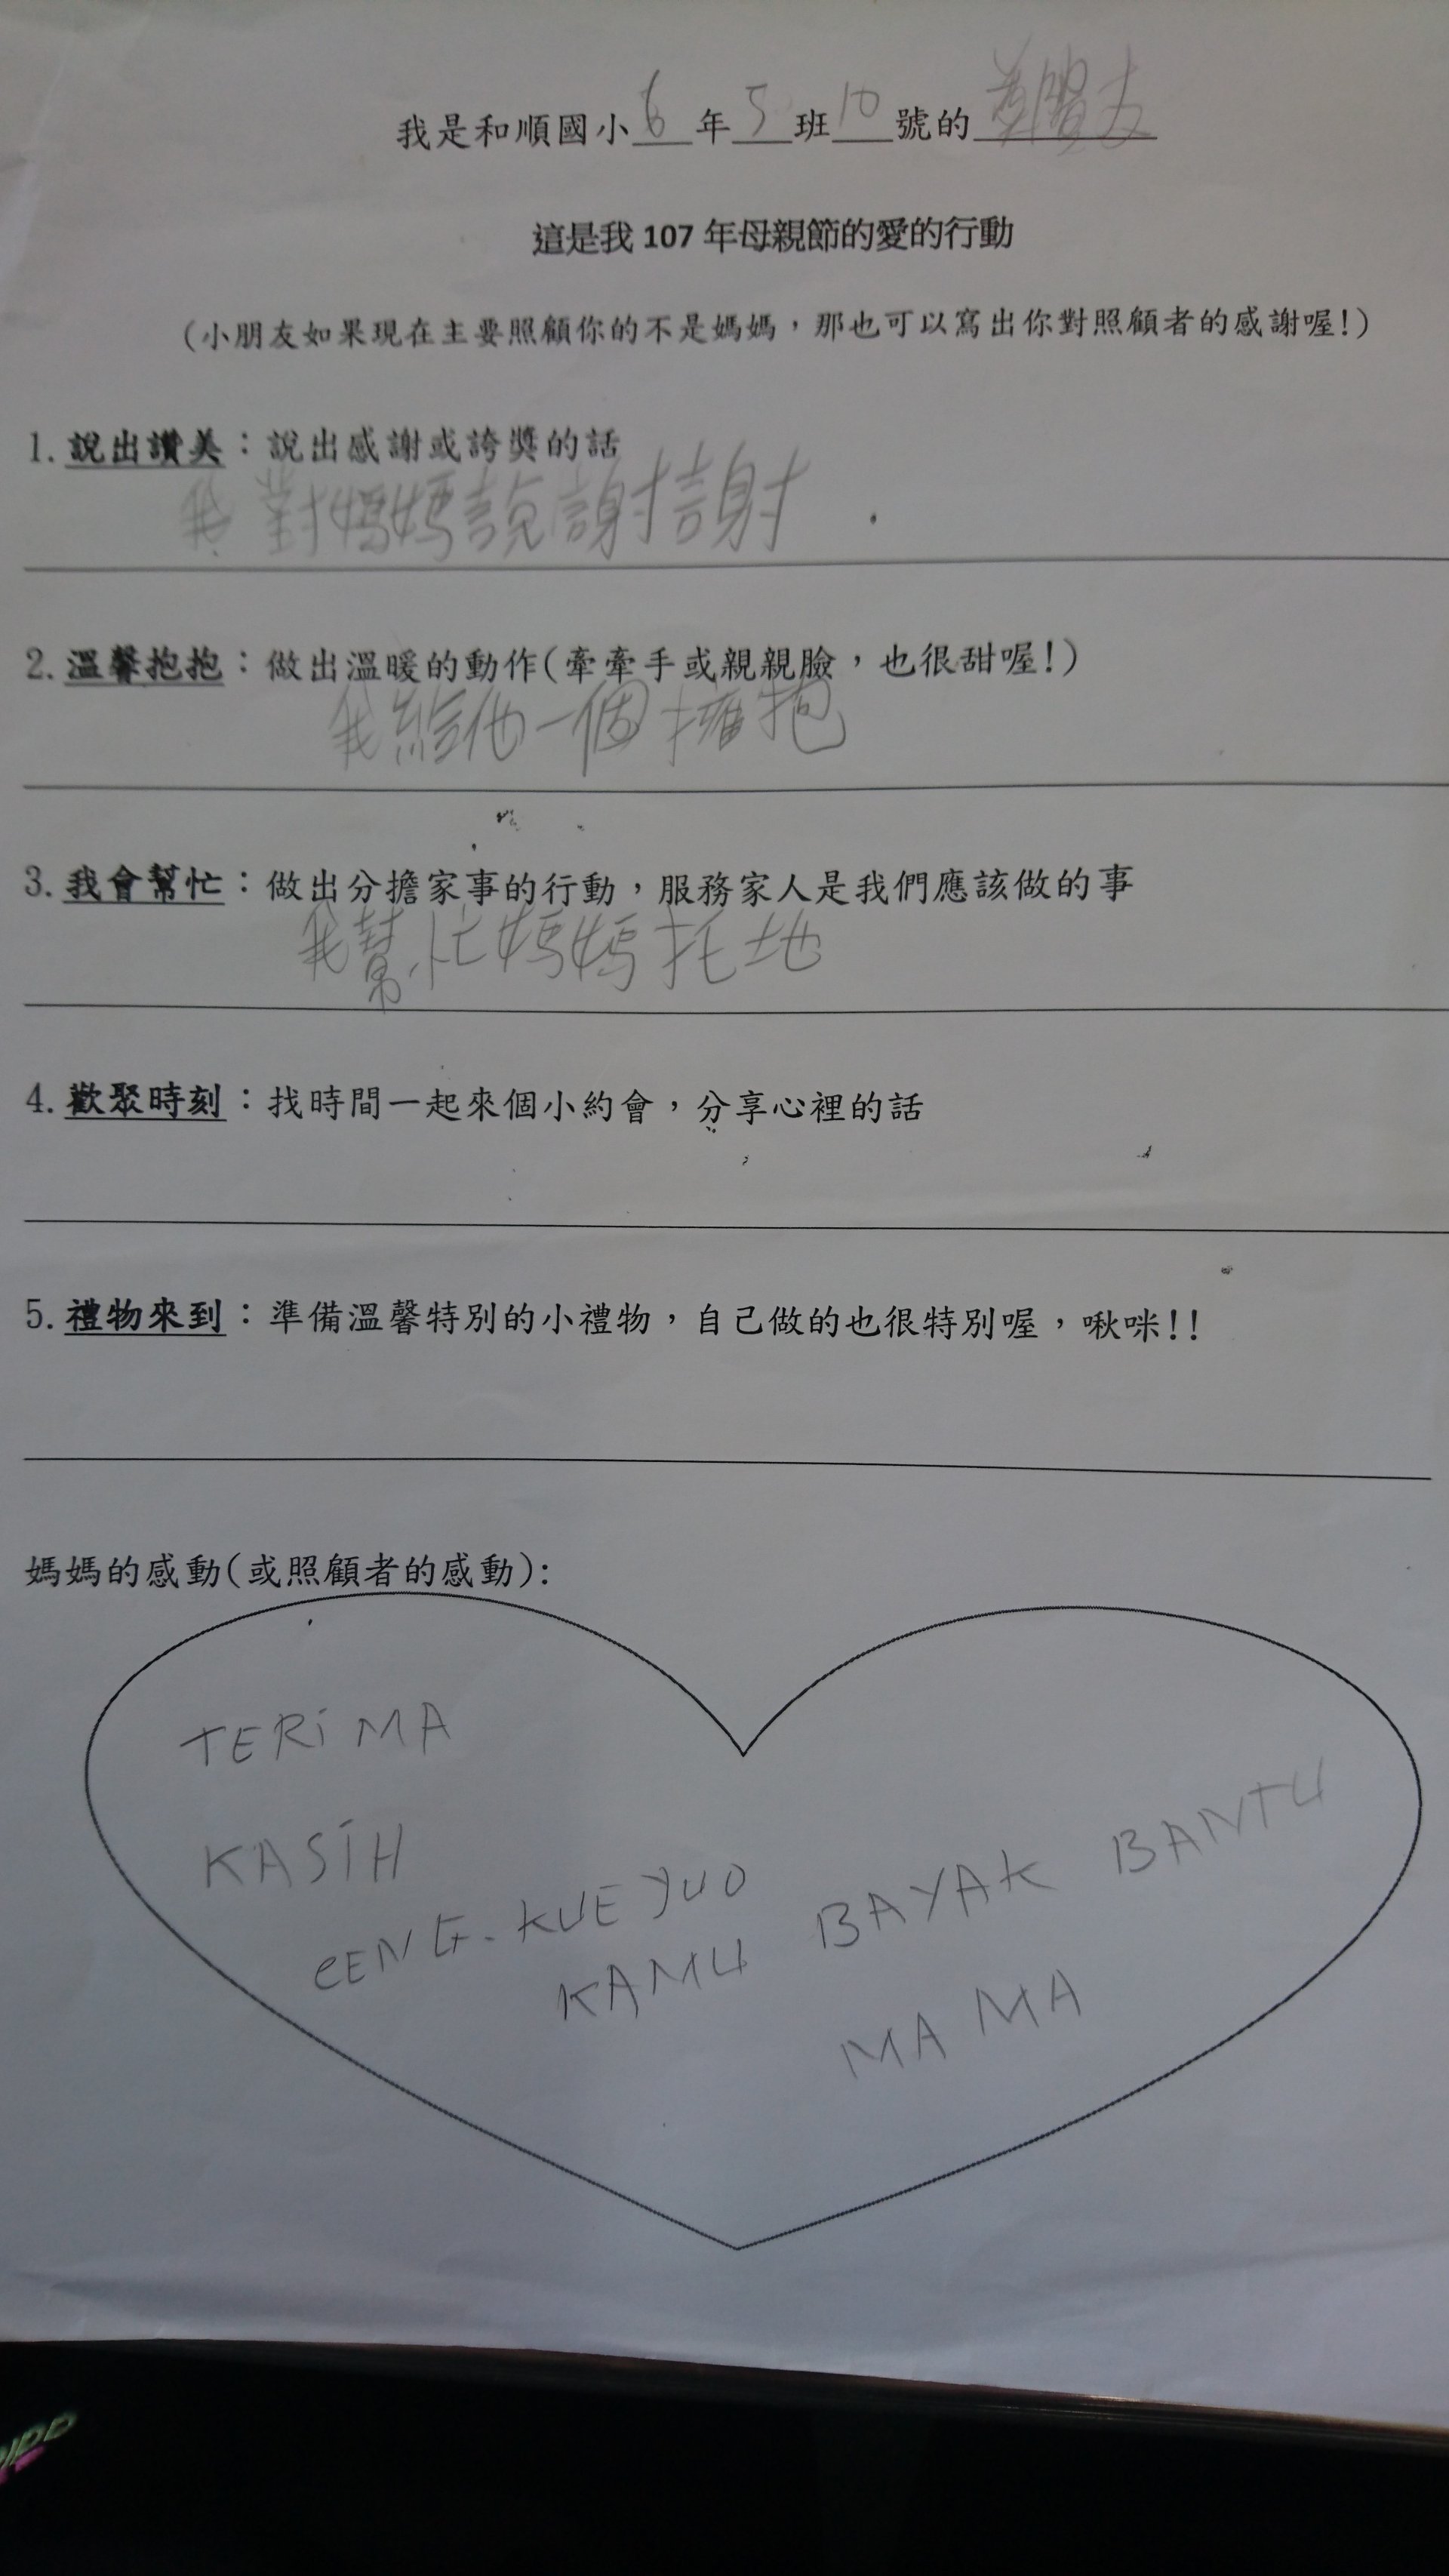 我是和順國小6年5班10號的
這是我107年母親節的愛的行動
(小朋友如果現在主要照顧你的不是媽媽，那也可以寫出你對照顧者的感謝喔!)
1.說出讚美：說出感謝或誇獎的話
我對媽媽說謝謝
2.溫馨抱抱：做出溫暖的動作(牽牽手或親親臉，也很甜喔!)
我給他一個擁抱
3.我會幫忙：做出分擔家事的行動，服務家人是我們應該做的事
我幫忙媽媽托地
4.歡聚時刻：找時間一起來個小約會，分享心裡的話
5.禮物來到：準備溫馨特別的小禮物，自己做的也很特別喔，啾咪!!
媽媽的感動(或照顧者的感動):
TERiMA
KASiH
CENG. KUE YUO
KAMU BAYAK BANTU
MAMA